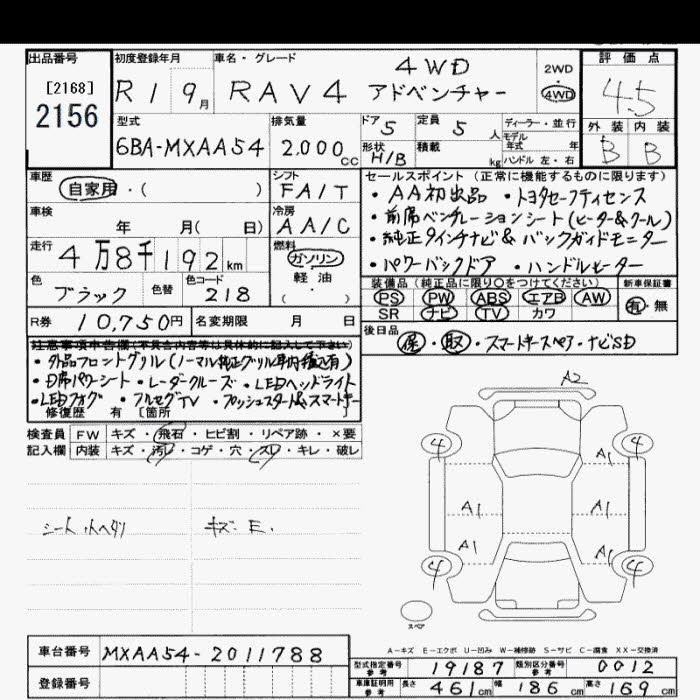 出品番号 初度登録年月 車名・グレード 評価点
[2168] R1 9月 RAV4 4WD アドベンチャー 2WD 4WD 4.5
2156
型式 排気量 ドア 5 定員 5人 ディーラー・並行 外装 内装
6BA-MXAA54 2.000cc 形状 H/B 積載 kg モデル年式 年 ハンドル 左・右 B B
車歴 シフト セールスポイント(正常に機能するものに限ります)
自家用・( ) FA/T ・AA初出品 ・トヨタセーフティセンス
車検 冷房 ・前席ベンチレーションシート(ヒーター&クール)
年 月( 日) AA/C ・純正9インチナビ& バックガイドモニター
走行 燃料
4万8千192km ガソリン ・パワーバックドア ・ハンドルヒーター
色 色替 色コード 軽油 装備品(純正品に限り○をつけてください) 新車保証書
ブラック 218 ( ) PS PW ABS エアB AW 有・無
SR ナビ TV カワ
R券 10,750円 名変期限 月 日 後日品
保・取・スマートキースペア・ナビSD
注意事項申告欄(不具合内容等は具体的に記入して下さい)
・外品フロントグリル(ノーマル純正グリル車内積込有)
・D席パワーシート ・レーダークルーズ ・LEDヘッドライト
・LEDフォグ ・フルセグTV ・プッシュスタート&スマートキー
修復歴 有 [箇所
検査員 FW キズ・飛石・ヒビ割・リペア跡・×要
記入欄 内装 キズ・汚レ・コゲ・穴・スレ・キレ・破レ
A2
4 A1 4
A1 A1
A1 A1
4 4
シート.小ヘタリ キズ.E.
スペア
A-キズ E-エクボ U-凹み W-補修跡 S-サビ C-腐食 XX-交換済
車台番号 MXAA54-2011788
型式指定番号 参考 19187 類別区分番号 参考 0012
登録番号 車庫証明用 参考 長さ 461cm 幅 186cm 高さ 169cm